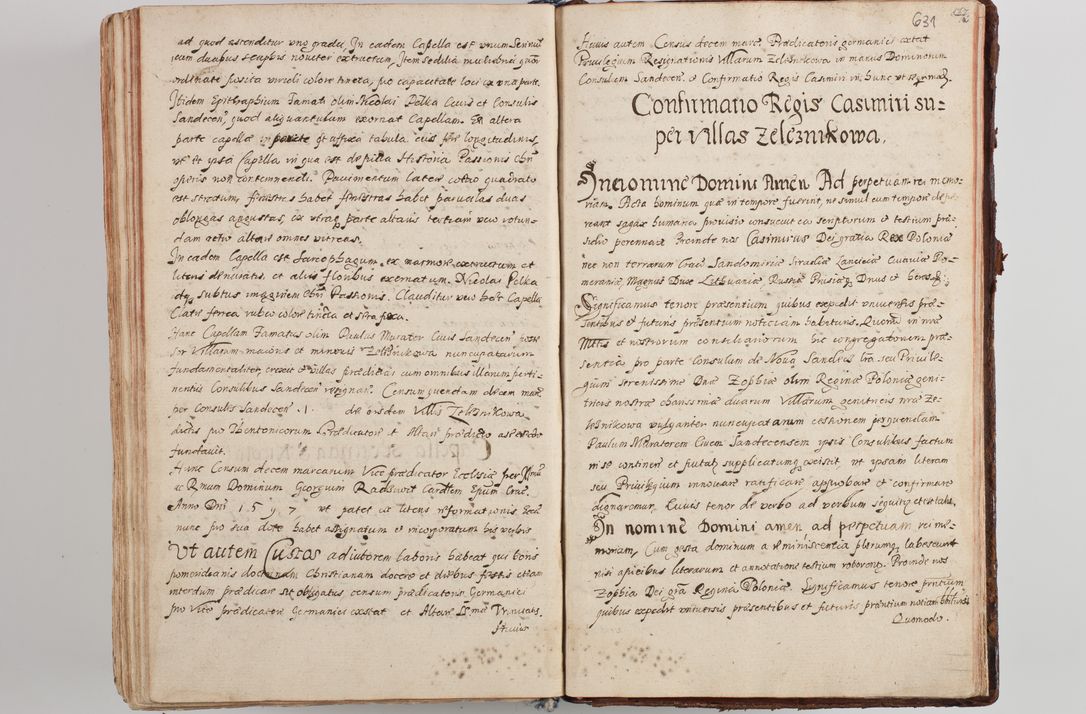 ad quod ascenditur uno gradu, In eadem Capella est unum
cum duabus scapis noviter extructum, Item sedilia muliebria
ordinate posita viridi colore tincta, pro capacitate loci ex una parte.
Itidem Epithaphium Famati olim Nicolai Pelka Civis et Consulis
Sandecen, quod aliquantulum exornat Capellam. Ex altera
parte capellæ in pariete est affixa tabula eius fere longitudinis,
ut et ipsa Capella in qua est depicta Historia Passionis Chri
operis non contemnendi. Pavimentum latere cocto quadrato
est stratum, fenestras habet parvulas duas
oblongas angustas, ex utraq parte altaris tertiam vero rotun=
dam retro altare omnes vitreas.
In eadem Capella est Sarcophagum ex marmore extructum et
literis deauratis, et aliis floribus exornatum. Nicolai Pelka
subtus imaginem Chri Passionis. Clauditur vero hæc Capella
Clatri ferrea rubeo colore tincta et sera fixa.
Hanc Capellam Famatus olim Paulus Murator Civis Sandecen
sor Villarum maioris et minoris Zelesnikowa nuncupatarum
fundamentaliter, erexit et villas prædictas cum omnibus illarum perti=
nentiis Consulibus Sandecen resignat. Censum quendam decem mar
per Consules Sandecen . 1 . de eisdem Villis Zelesnikowa
dictis pro Theutonicorum Prædicatore et Altari prædicto
fundavit.
Hunc Censum decem marcarum Vice prædicator Ecclesiæ per
ac Rmum Dominum Georgium Radziwil Cardlem Epum Crac.
Anno Dni 1 . 5 9 7 ut patet in literis reformationis
nunc pro sua dote habet assignatum et incorporatum his verbis
Ut autem Custos adiutorem laboris habeat qui horis
pomeridianis doctrinam Christianam docere et diebus festis etiam
interdum prædicare sit obligatus censum prædicatoris Germanici
pro Vice prædicatore Germanico extat et Altare
Huius
631
Huius autem Census decem marc. Prædicatoris germanici extat
Privilegium Resignationis Villarum Zelesnikowa in manus Dominorum
Consulum Sandecen. et Confirmatio Regis Casimiri in hunc
Confirmatio Regis Casimiri su=
per villas Zeleznikowa.
In nomine Domini Amen Ad perpetuam rei memo=
riam. Acta hominum quæ in tempore fuerint, ne simul cum tempore
reant sagax humana provisio consuevit ea scriptorum et testium præ=
sidio perennare Proinde nos Casimirus Dei gratia Rex Poloniæ
nec non terrarum Crac Sandomiriæ Siradiæ Lanciciæ Cuiaviæ Po=
meraniæ, Magnus Dux Lithuaniæ, Russiæ Prusiæq Dnus et heres
Significamus tenore præsentium quibus expedit universis præ=
sentibus et futuris præsentium noticiam habituris. Quomo in nra
Mttis et nostrorum consiliariorum hic congregatorum præ=
sentia pro parte Consulum de Nova Sandecz lra seu Privile=
gium Serenissimæ Dnæ Zophiæ olim Reginæ Poloniæ geni=
tricis nostræ charissimæ duarum Villarum genitricis nræ Ze=
lesnikowa vulgariter nuncupatarum cessionem per quendam
Paulum Muratorem Civem Sandecensem ipsis Consulibus factum
in se continens et supplicatumq extitit, ut ipsam literam
seu Privilegium innovare ratificare approbare et confirmare
dignaremur. Cuius tenor de verbo ad verbum sequitur et est talis.
In nomine Domini amen ad perpetuam rei me=
moriam, Cum gesta hominum a reminiscentia plerumq labescunt
nisi apicibus literarum et annotatione testium roborent. Proinde nos
Zophia Dei gra Regina Poloniæ. Significamus tenore prntium
quibus expedit universis præsentibus et futuris præsntium noticiam
Quomodo.